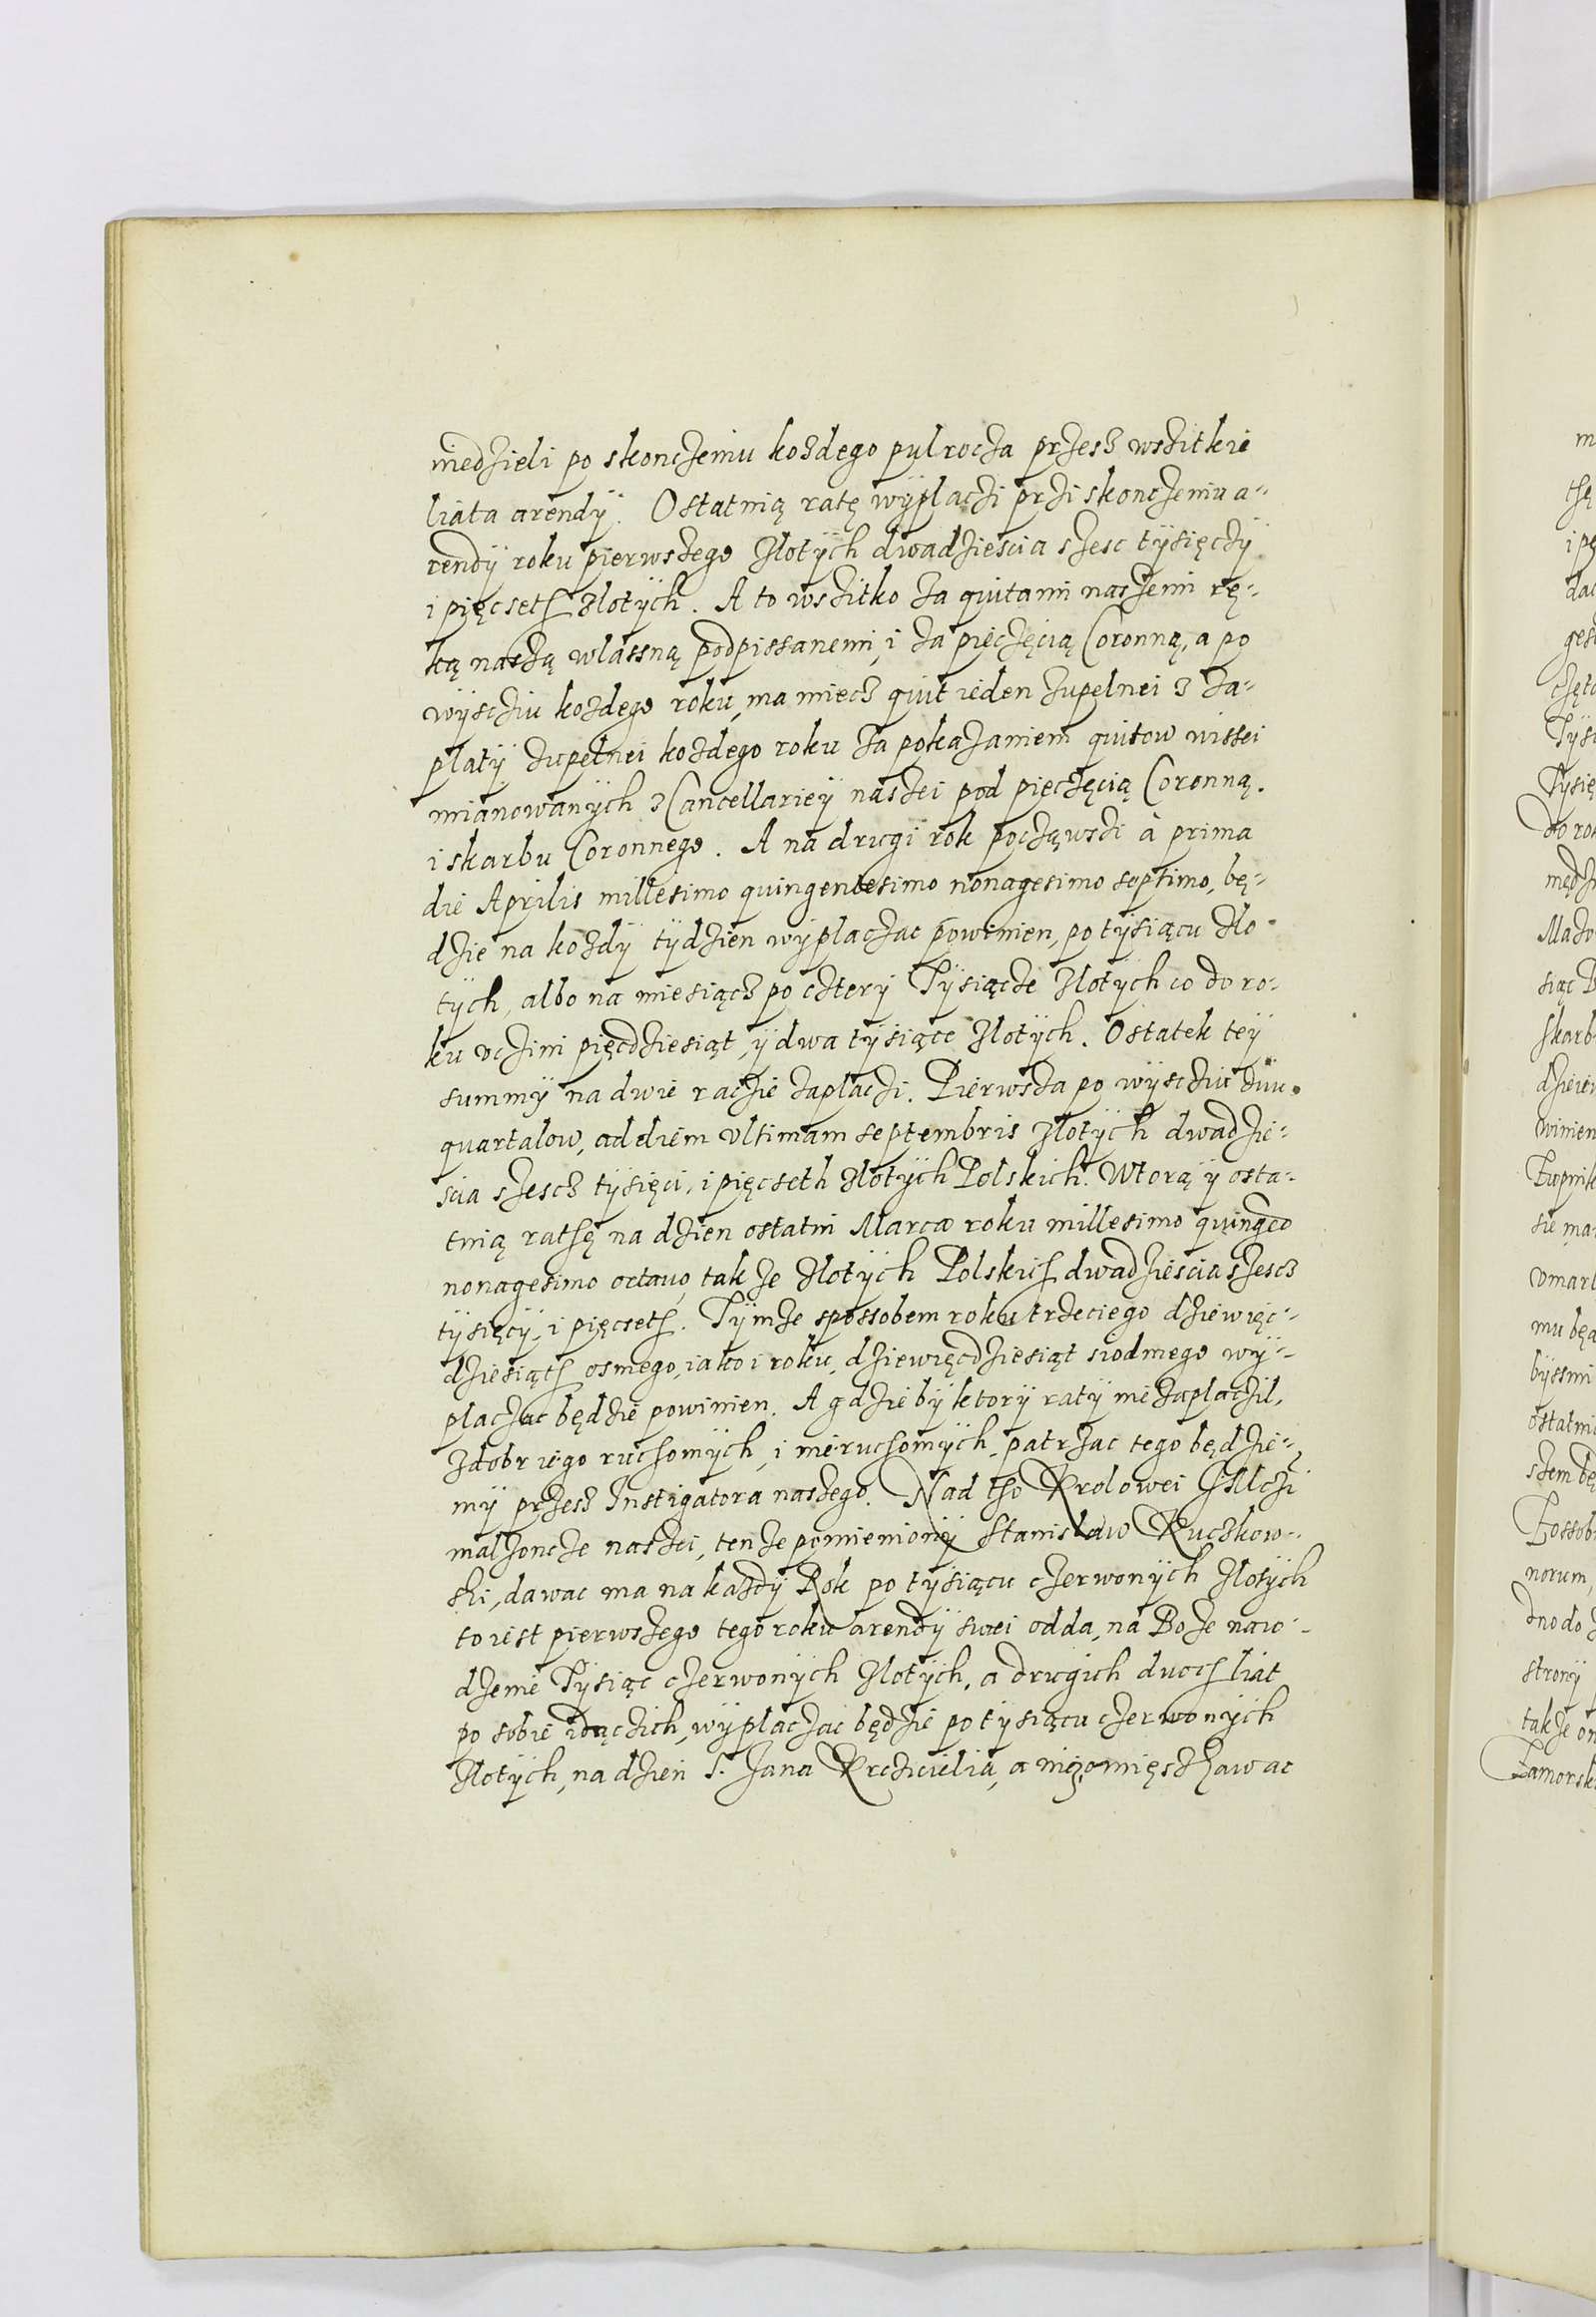 niedzieli po skonczeniu kozdego pulrocza przesz wszitkie
liata arendÿ. Ostatnią ratę wÿplaczi przi skonczeniu a-
rendÿ roku pierwszego Zlotÿch dwadziescia szesc tÿsięczÿ
i pięcseth Zlotÿch. A to wszitko za quitami naszemi rę-
ką naszą wlassną podpissanemi, i za pieczęcią Coronną, a po
wÿscziu kozdego roku, ma miecz quit ieden zupelnei z za-
platÿ zupelnei kozdego roku za pokazaniem quitow wissei
mianowanÿch z Cancellarieÿ naszei pod pięczęcią Coronną.
i skarbu Coronnego. A na drugi rok począwszi à prima
die Aprilis millesimo quingentesimo nonagesimo septimo, bę-
dzie na kozdÿ tÿdzien wÿplaczac powinien, po tÿsiącu zlo-
tÿch, albo na miesiącz po czterÿ Tÿsiącze Zlotÿch co do ro-
ku vczini pięcdziesiąt, ÿ dwa tÿsiące Zlotÿch. Ostatek teÿ
summÿ na dwie raczie zaplaczi. Pierwsza po wÿscziu dwu
quartalow, ad diem vltimam septembris Zlotÿch dwadzie-
scia szescz tÿsięci, i pięcseth Zlotÿch Polskich. Wtorą ÿ osta-
tnią rathę na dzien ostatni Marca roku millesimo quingeo
nonagesimo octauo, takze Zlotÿch Polskich dwadziescia szescz
tÿsięcÿ, i pięcseth. Tÿmze spossobem roku trzeciego dziewięc-
dziesiąth osmego, iako i roku, dziewięcdziesiąt siodmego wÿ-
placzac będzie powinien. A gdziebÿ ktorÿ ratÿ nie zaplaczil,
z dobr iego ruchomÿch, i nieruchomÿch, patrzac tego będzie-
mÿ przesz Instigatora naszego. Nad tho Krolowei JMczi
malzoncze naszei, tenze pomienionÿ Stanislaw Ruczkow-
ski, dawac ma na kazdÿ Rok po tÿsiącu czerwonÿch Zlotÿch
to iest pierwszego tego roku arendÿ swei odda, na Boze naro-
dzenie Tÿsiąc czerwonÿch Zlotÿch, a drugich dwoch liat
po sobie idączich, wÿplaczac będzie po tÿsiącu czerwonÿch
Zlotÿch, na dzien S. Jana Krzcziciela, a